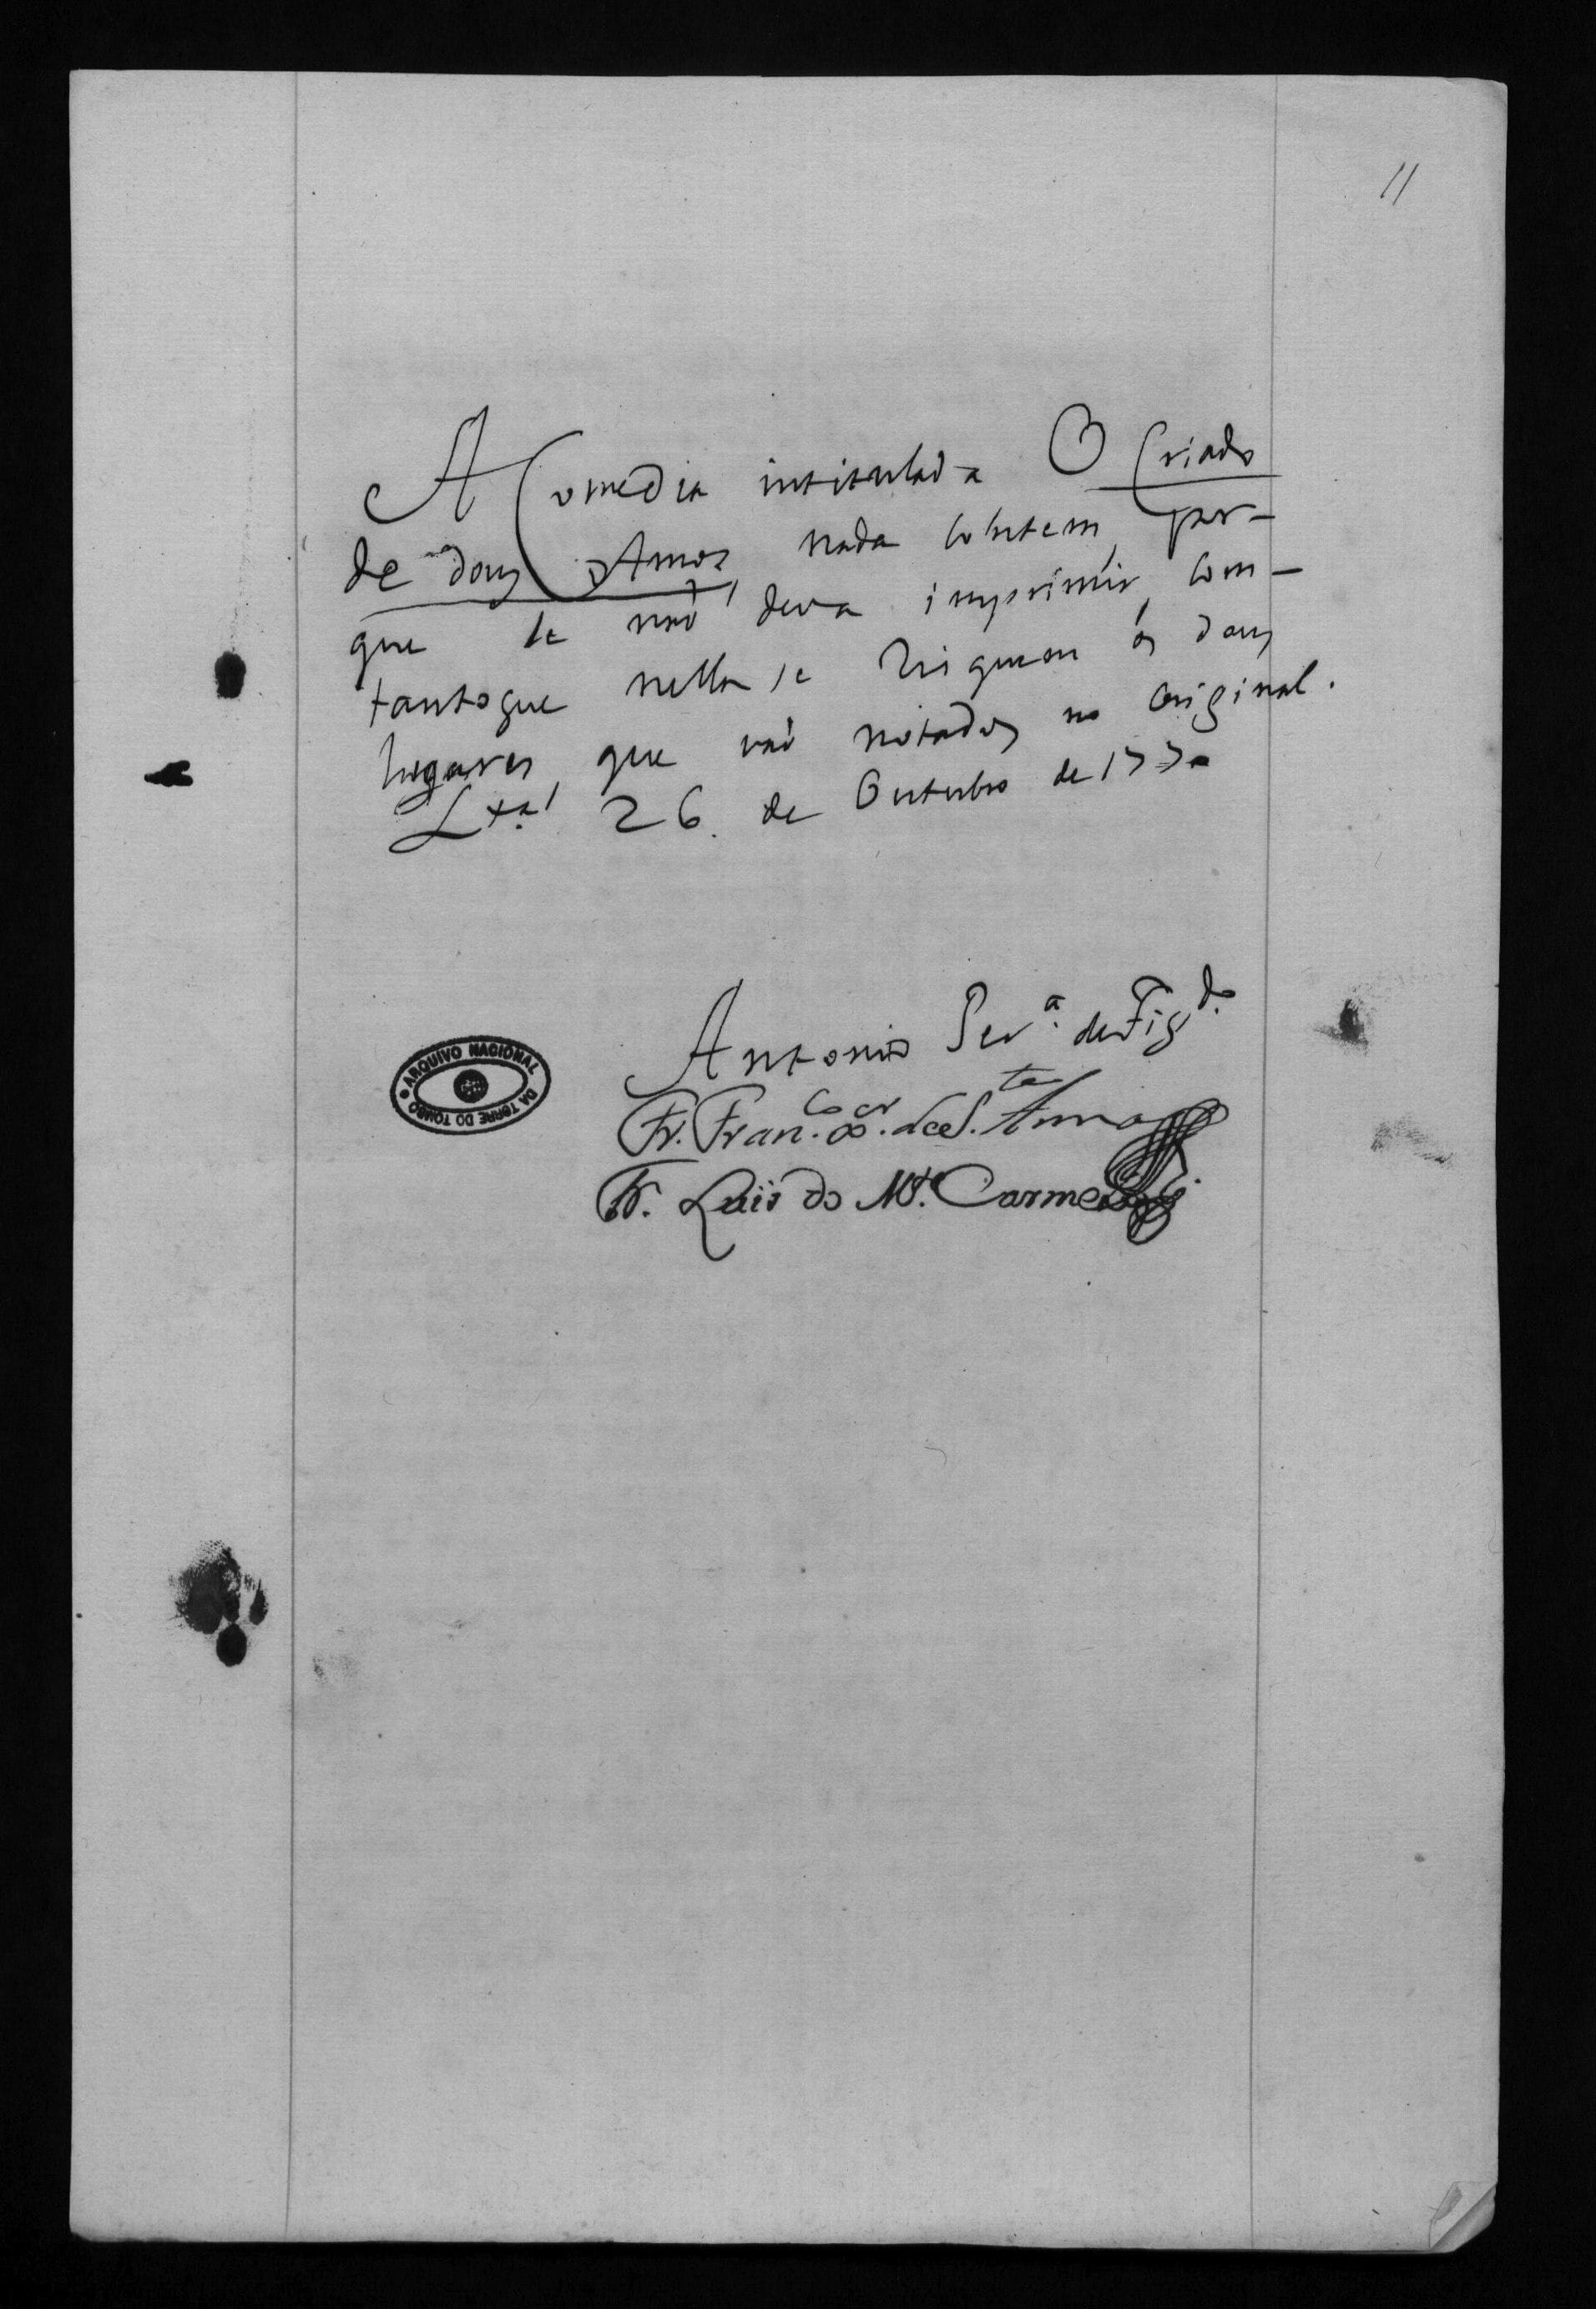 11
A Comedia intitulada O Criado
de dous Amos, nada contem, por-
que se naõ deva imprimir, com-
tantoque nella se risquem os dous
lugares, que vaõ notados no original.
Lxa. 26. de Outubro de 1770
Antonio Per.ª de Fig.do
Fr. Fran.co X.er de S.ta Anna
Fr. Luis do M.te Carmelo
ARQUIVO NACIONAL DA TORRE DO TOMBO